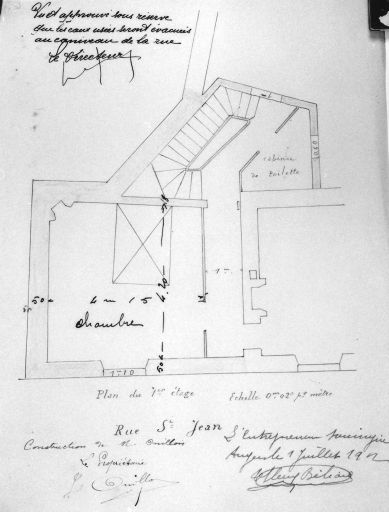 Vu et approuvé sous réserve
que les eaux usées seront évacuées
au caniveau de la rue
Le Directeur
cabinet
de toilette
0.60
58
50
4 m 15
4.20
1 m
chambre
50
1m10
Plan du 1er étage
Echelle 0m02 p. mètre
Rue St Jean
Construction de M.
Le Propriétaire
L'Entrepreneur
le 1 Juillet